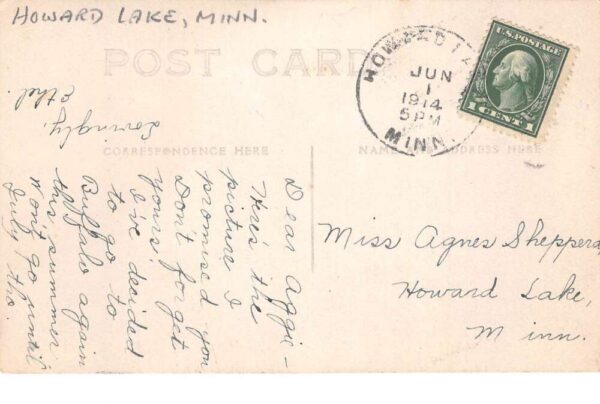 HOWARD LAKE, MINN.
POST CARD
CORRESPONDENCE HERE
NAME AND ADDRESS HERE
HOWARD LA
JUN
1
1914
5 PM
MINN.
U.S. POSTAGE
1 CENT 1
Dear Aggie—
Here's the
picture I
promised you
Don't forget
yours!
I've decided
to go to
Buffalo again
this summer
won't go until
July tho.
Lovingly,
Ethel.
Miss Agnes Shepperd,
Howard Lake,
Minn.